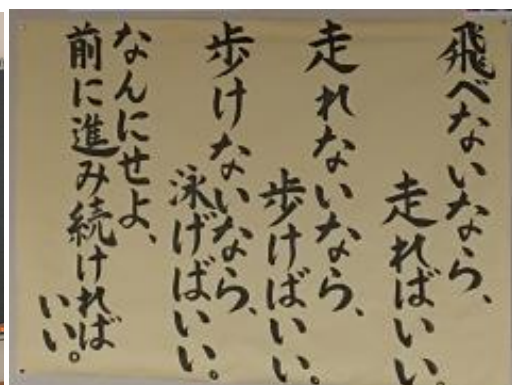 飛べないなら、
走ればいい。
走れないなら、
歩けばいい。
歩けないなら、
泳げばいい。
なんにせよ、
前に進み続ければ
いい。